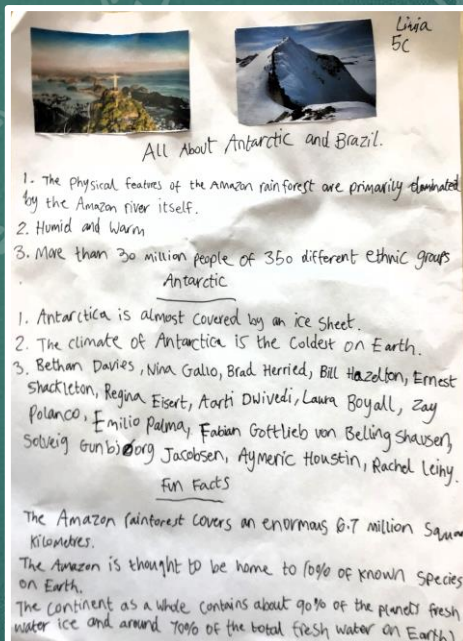 Livia
5C
All About Antarctic and Brazil.
1. The Physical features of the Amazon rainforest are primarily dominated
by the Amazon river itself.
2. Humid and Warm
3. More than 30 million people of 350 different ethnic groups
Antarctic
1. Antarctica is almost covered by an ice sheet.
2. The climate of Antarctica is the Coldest on Earth.
3. Bethan Davies, Nina Gallo, Brad Herried, Bill Hazelton, Ernest
Shackleton, Regina Eisert, Aarti Dwivedi, Laura Boyall, Zay
Polanco, Emilio Palma, Fabian Gottlieb von Bellingshausen,
Solveig Gunbjoorg Jacobsen, Aymeric Houstin, Rachel Leihy.
Fun Facts
The Amazon rainforest covers an enormous 6.7 million Square
Kilometres.
The Amazon is thought to be home to 10% of known species
on Earth.
The Continent as a whole contains about 90% of the planety fresh
water ice and around 70% of the total fresh water on Earth